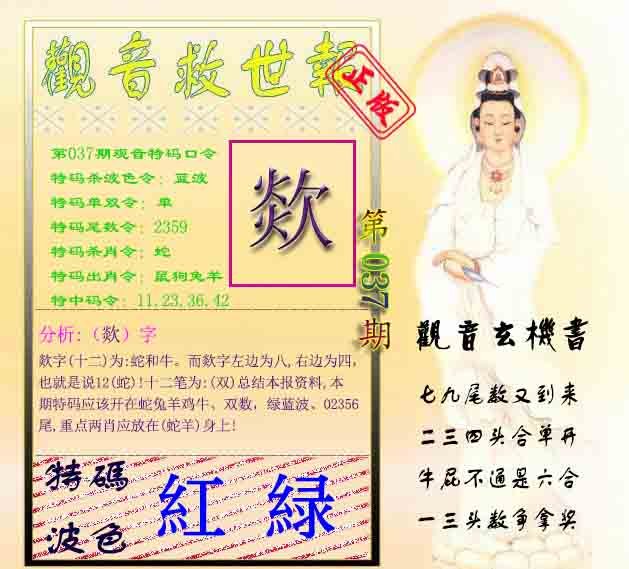 觀音救世報
正版
第037期观音特码口令
特码杀波色令：蓝波
特码单双令：单
特码尾数令：2359
特码杀肖令：蛇
特码出肖令：鼠狗兔羊
特中码令：11.23.36.42
欻
第037期
分析:（欻）字
欻字(十二)为:蛇和牛。而欻字左边为八,右边为四,
也就是说12(蛇)!十二笔为:(双)总结本报资料,本
期特码应该开在蛇兔羊鸡牛、双数，绿蓝波、02356
尾,重点两肖应放在(蛇羊)身上!
特碼
波色
紅 绿
觀音玄機書
七九尾数又到来
二三四头合单开
牛屁不通是六合
一三头数争拿奖